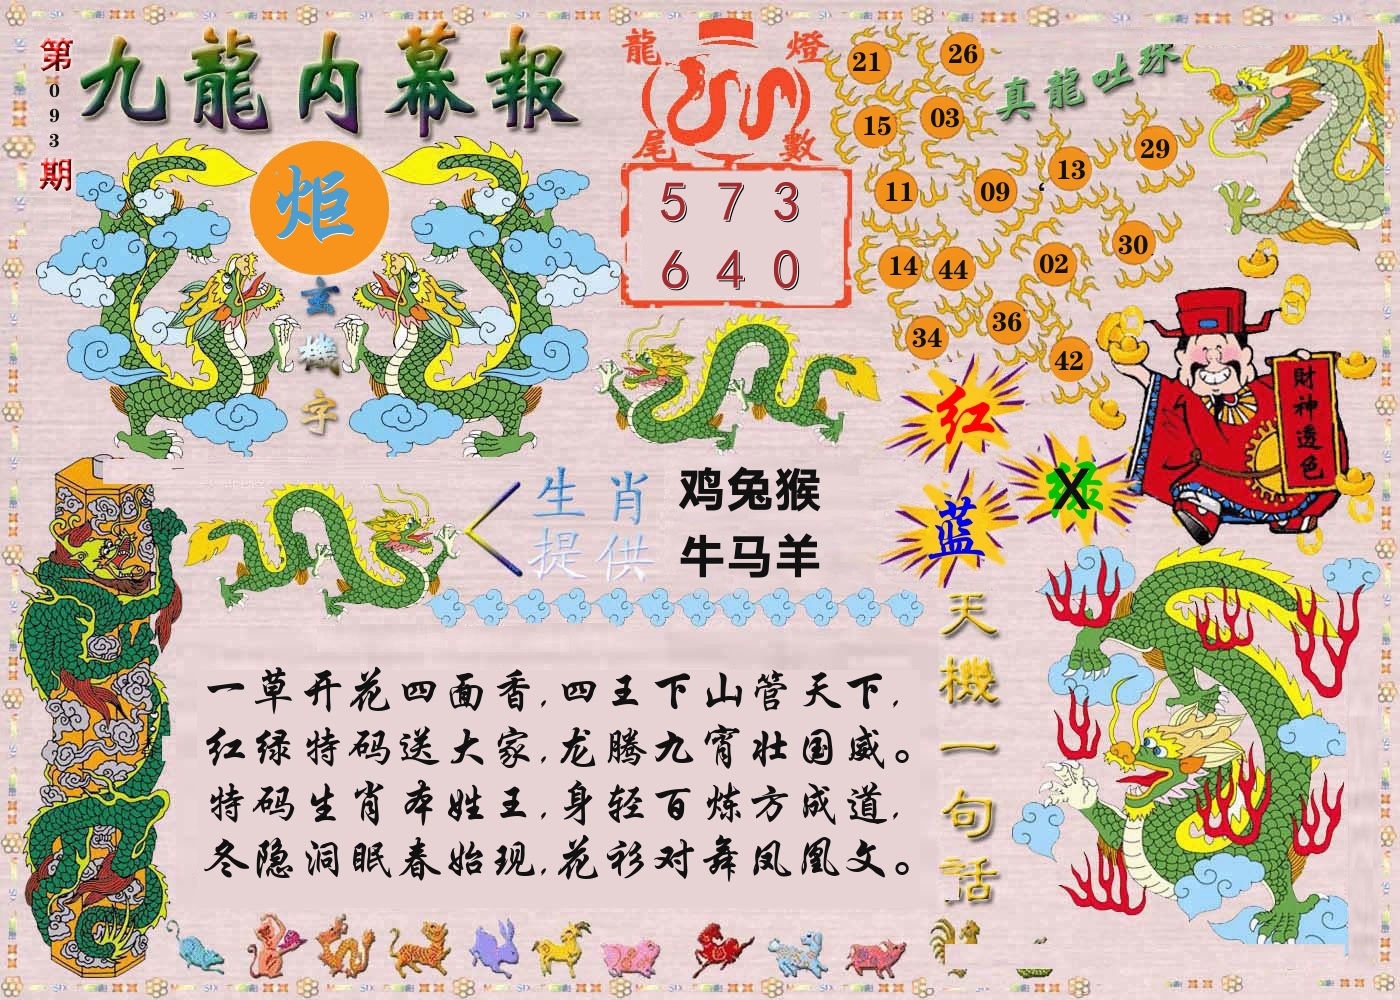 第093期
九龍内幕報
炬
玄機字
龍燈
尾數
5 7 3
6 4 0
真龍吐珠
21
26
15
03
29
13
11
09
30
14
44
02
36
34
42
財神透色
红
绿
X
蓝
生肖
提供
鸡兔猴
牛马羊
天機一句话
一草开花四面香,四王下山管天下,
红绿特码送大家,龙腾九霄壮国威。
特码生肖本姓王,身轻百炼方成道,
冬隐洞眠春始现,花衫对舞凤凰文。